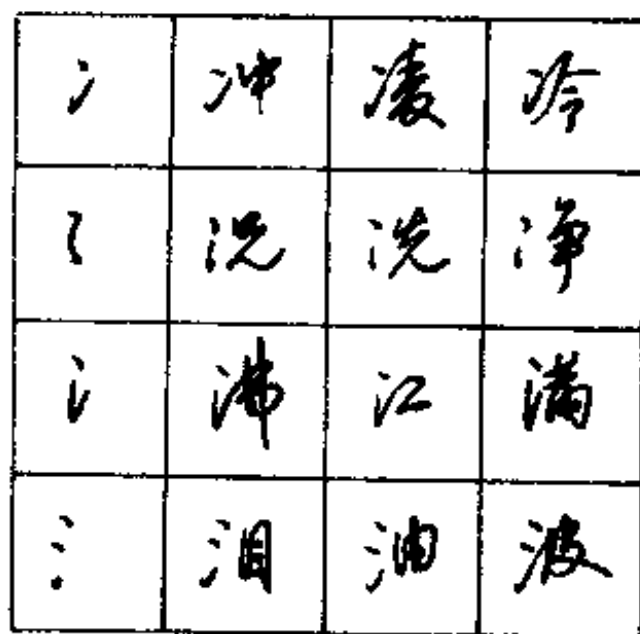 冫 冲 凌 冷
氵 况 洗 净
氵 沸 江 满
氵 泪 油 波